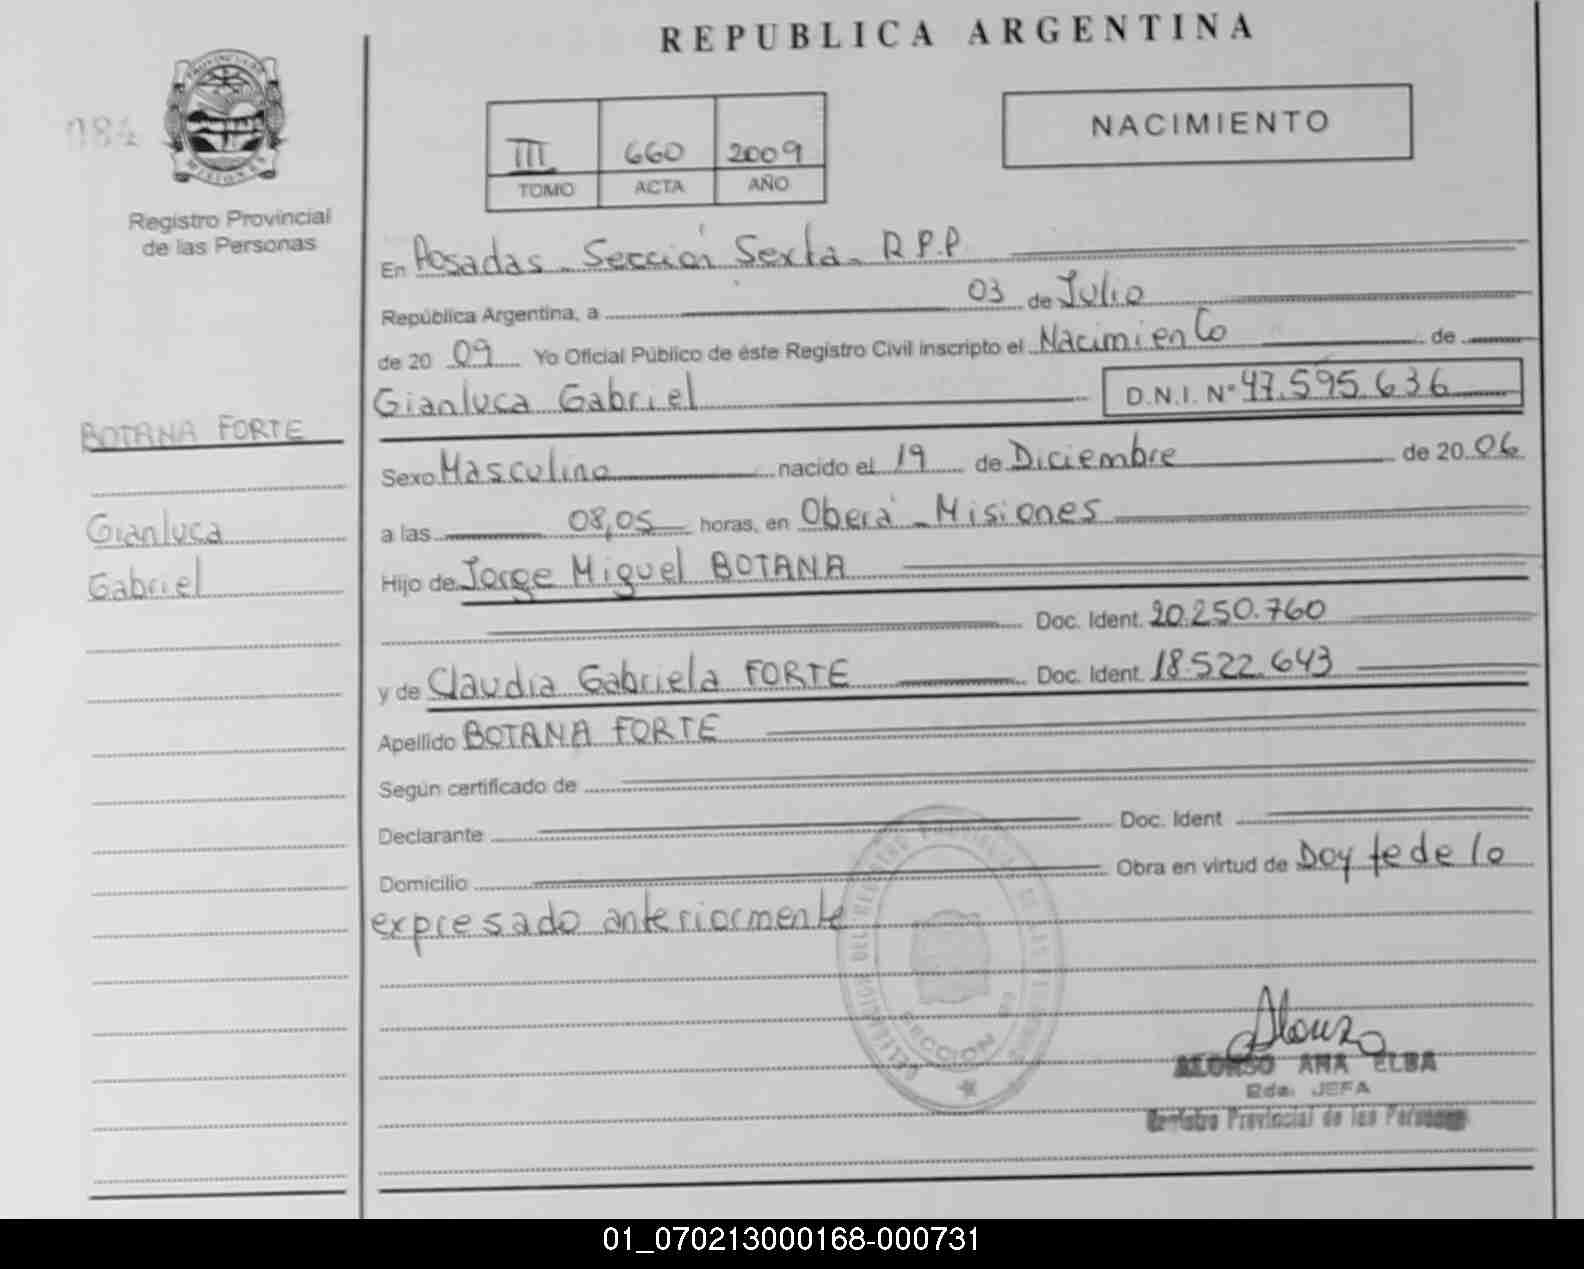 REPUBLICA ARGENTINA
084
PROVINCIA DE
MISIONES
Registro Provincial
de las Personas
III 660 2009
TOMO ACTA AÑO
NACIMIENTO
En Posadas - Sección Sexta - R.P.P
República Argentina, a 03 de Julio
de 20 09 Yo Oficial Público de éste Registro Civil inscripto el Nacimiento de
Gianluca Gabriel D.N.I. Nº 47.595.636
BOTANA FORTE
Sexo Masculino nacido el 19 de Diciembre de 20 06
Gianluca
a las 08,05 horas, en Oberá - Misiones
Gabriel
Hijo de Jorge Miguel BOTANA
Doc. Ident. 20.250.760
y de Claudia Gabriela FORTE Doc. Ident. 18.522.643
Apellido BOTANA FORTE
Según certificado de
Declarante Doc. Ident
Domicilio Obra en virtud de Doy fe de lo
expresado anteriormente
SECCION
Alonzo
ALONSO ANA ELBA
JEFA
Registro Provincial de las Personas
01_070213000168-000731